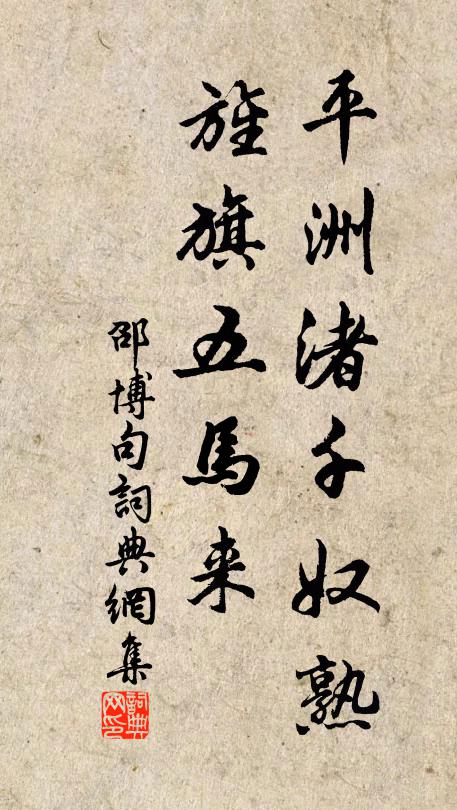 平洲渚千奴熟
旌旗五馬来
邵博句詞典網集
詞典网印